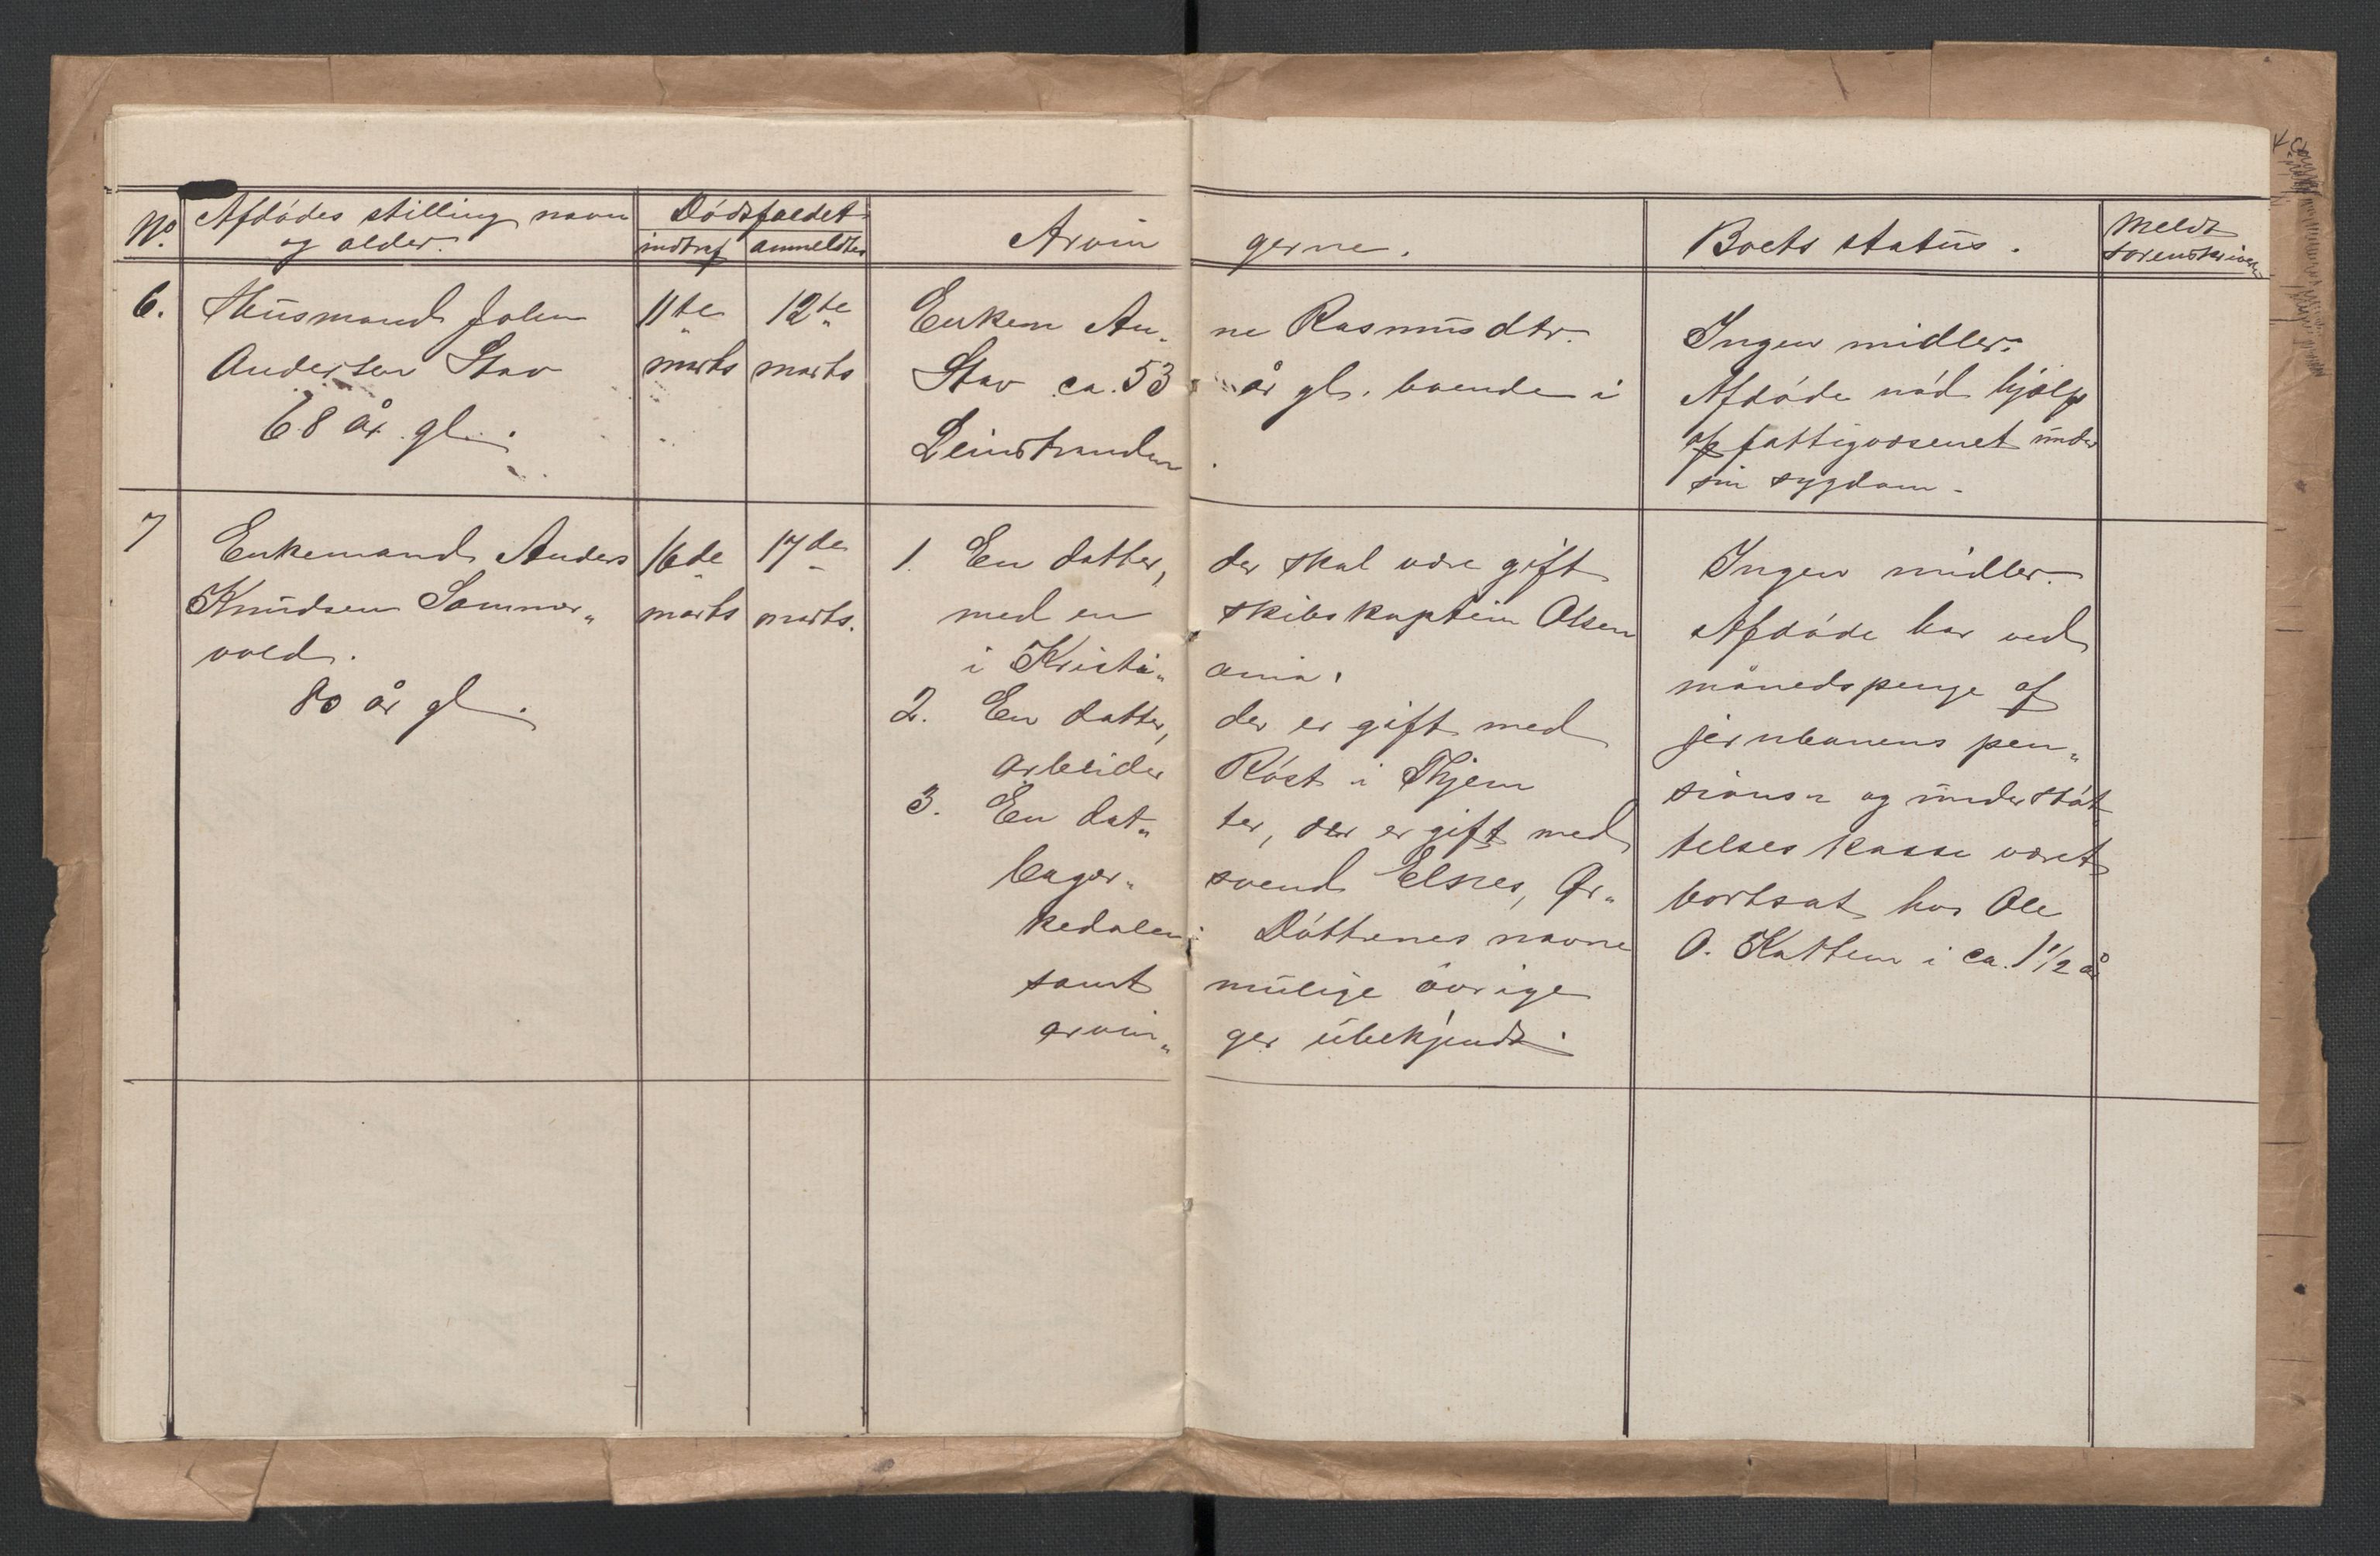 No. Afdødes stilling navn og alder. Dødsfaldet indtraf anmeldtes Arvingerne. Boets status. Meldt sorenskriveren
6.
Husmand John
Andersen Stav
68 år gl.
11te
marts
12te
marts
Enken An- ne Rasmusdtr.
Stav ca. 53 år gl. boende i
Leinstranden.
Ingen midler.
Afdøde nød hjælp
af fattigvæsenet under
sin sygdom.
7
Enkemand Anders
Knudsen Sommer„
vold.
80 år gl.
16de
marts
17de
marts.
1. En datter, der skal være gift
med en skibskaptein Olsen
i Kristi„ ania.
2. En datter, der er gift med
arbeider Røst i Thjem
3. En dat„ ter, der er gift med
bager„ svend Elsnes, Ør„
kedalen. Døttrenes navne
samt mulige øvrige
arvin„ ger ubekjendt.
Ingen midler.
Afdøde har ved
månedspenge af
jernbanens pen„
sions- og understøt„
telseskasse været
bortsat hos Ole
O. Kattem i ca. 1 1/2 år